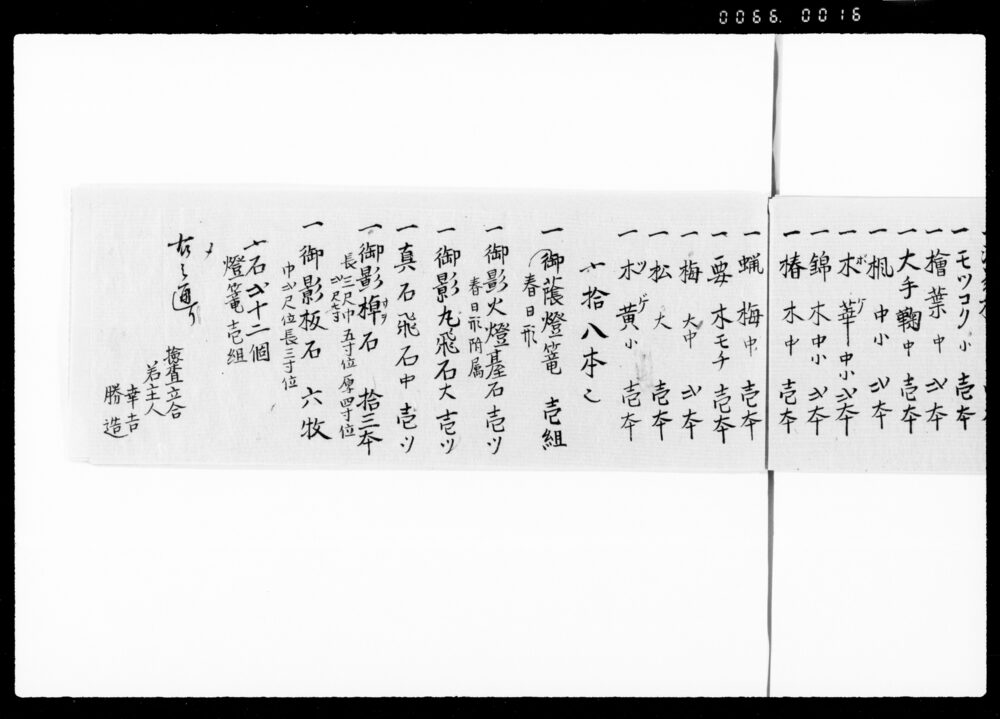 0066. 0016
一モツコク小 壱本
一檜葉中 弐本
一大手鞠中 壱本
一楓中小 弐本
一木華中小弐本
ボケ
一錦木中小 弐本
一椿木中 壱本
一蝋梅中 壱本
一要木モチ 壱本
一梅大中 弐本
一松大 壱本
一木黄小 壱本
ツゲ
〆拾八本也
一御蔭燈篭 壱組
春日形
一御影火燈基石 壱ツ
春日形附属
一御影丸飛石大 壱ツ
一真石飛石中 壱ツ
一御影棹石 拾三本
サヲ
長三尺巾五寸位厚四寸位
弐尺七寸
一御影板石 六枚
巾弐尺位長三寸位
〆石弐十二個
燈篭壱組
〆
右之通り
検査立合
若主人
幸吉
勝造